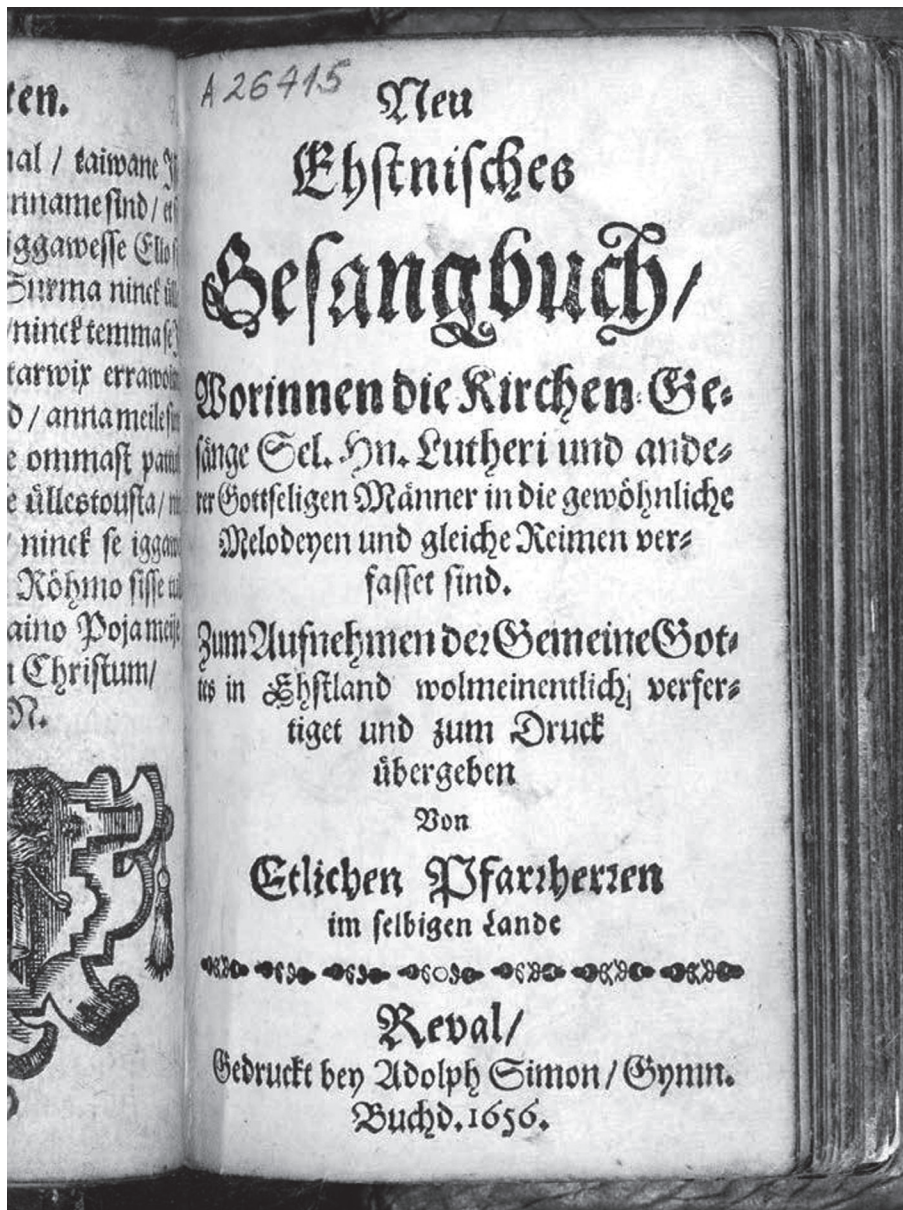 ten.
nal / taiwane
nname sind /
iggawesse Ello
Surma ninck
/ ninck temma
tarwix
d / anna meile
e ommast
e üllestousta /
ninck se
Röhmo sisse
aino Poja
Christum/
N.
A 26415
Neu
Ehstnisches
Gesangbuch/
Worinnen die Kirchen-Ge-
sänge Sel. Hn. Lutheri und ande-
rer Gottseligen Männer in die gewöhnliche
Melodeyen und gleiche Reimen ver-
fasset sind.
Zum Aufnehmen der Gemeine Got-
tes in Ehstland wolmeinentlich verfer-
tiget und zum Druck
übergeben
Von
Etlichen Pfarrherren
im selbigen Lande
Reval/
Gedruckt bey Adolph Simon / Gymn.
Buchd. 1656.